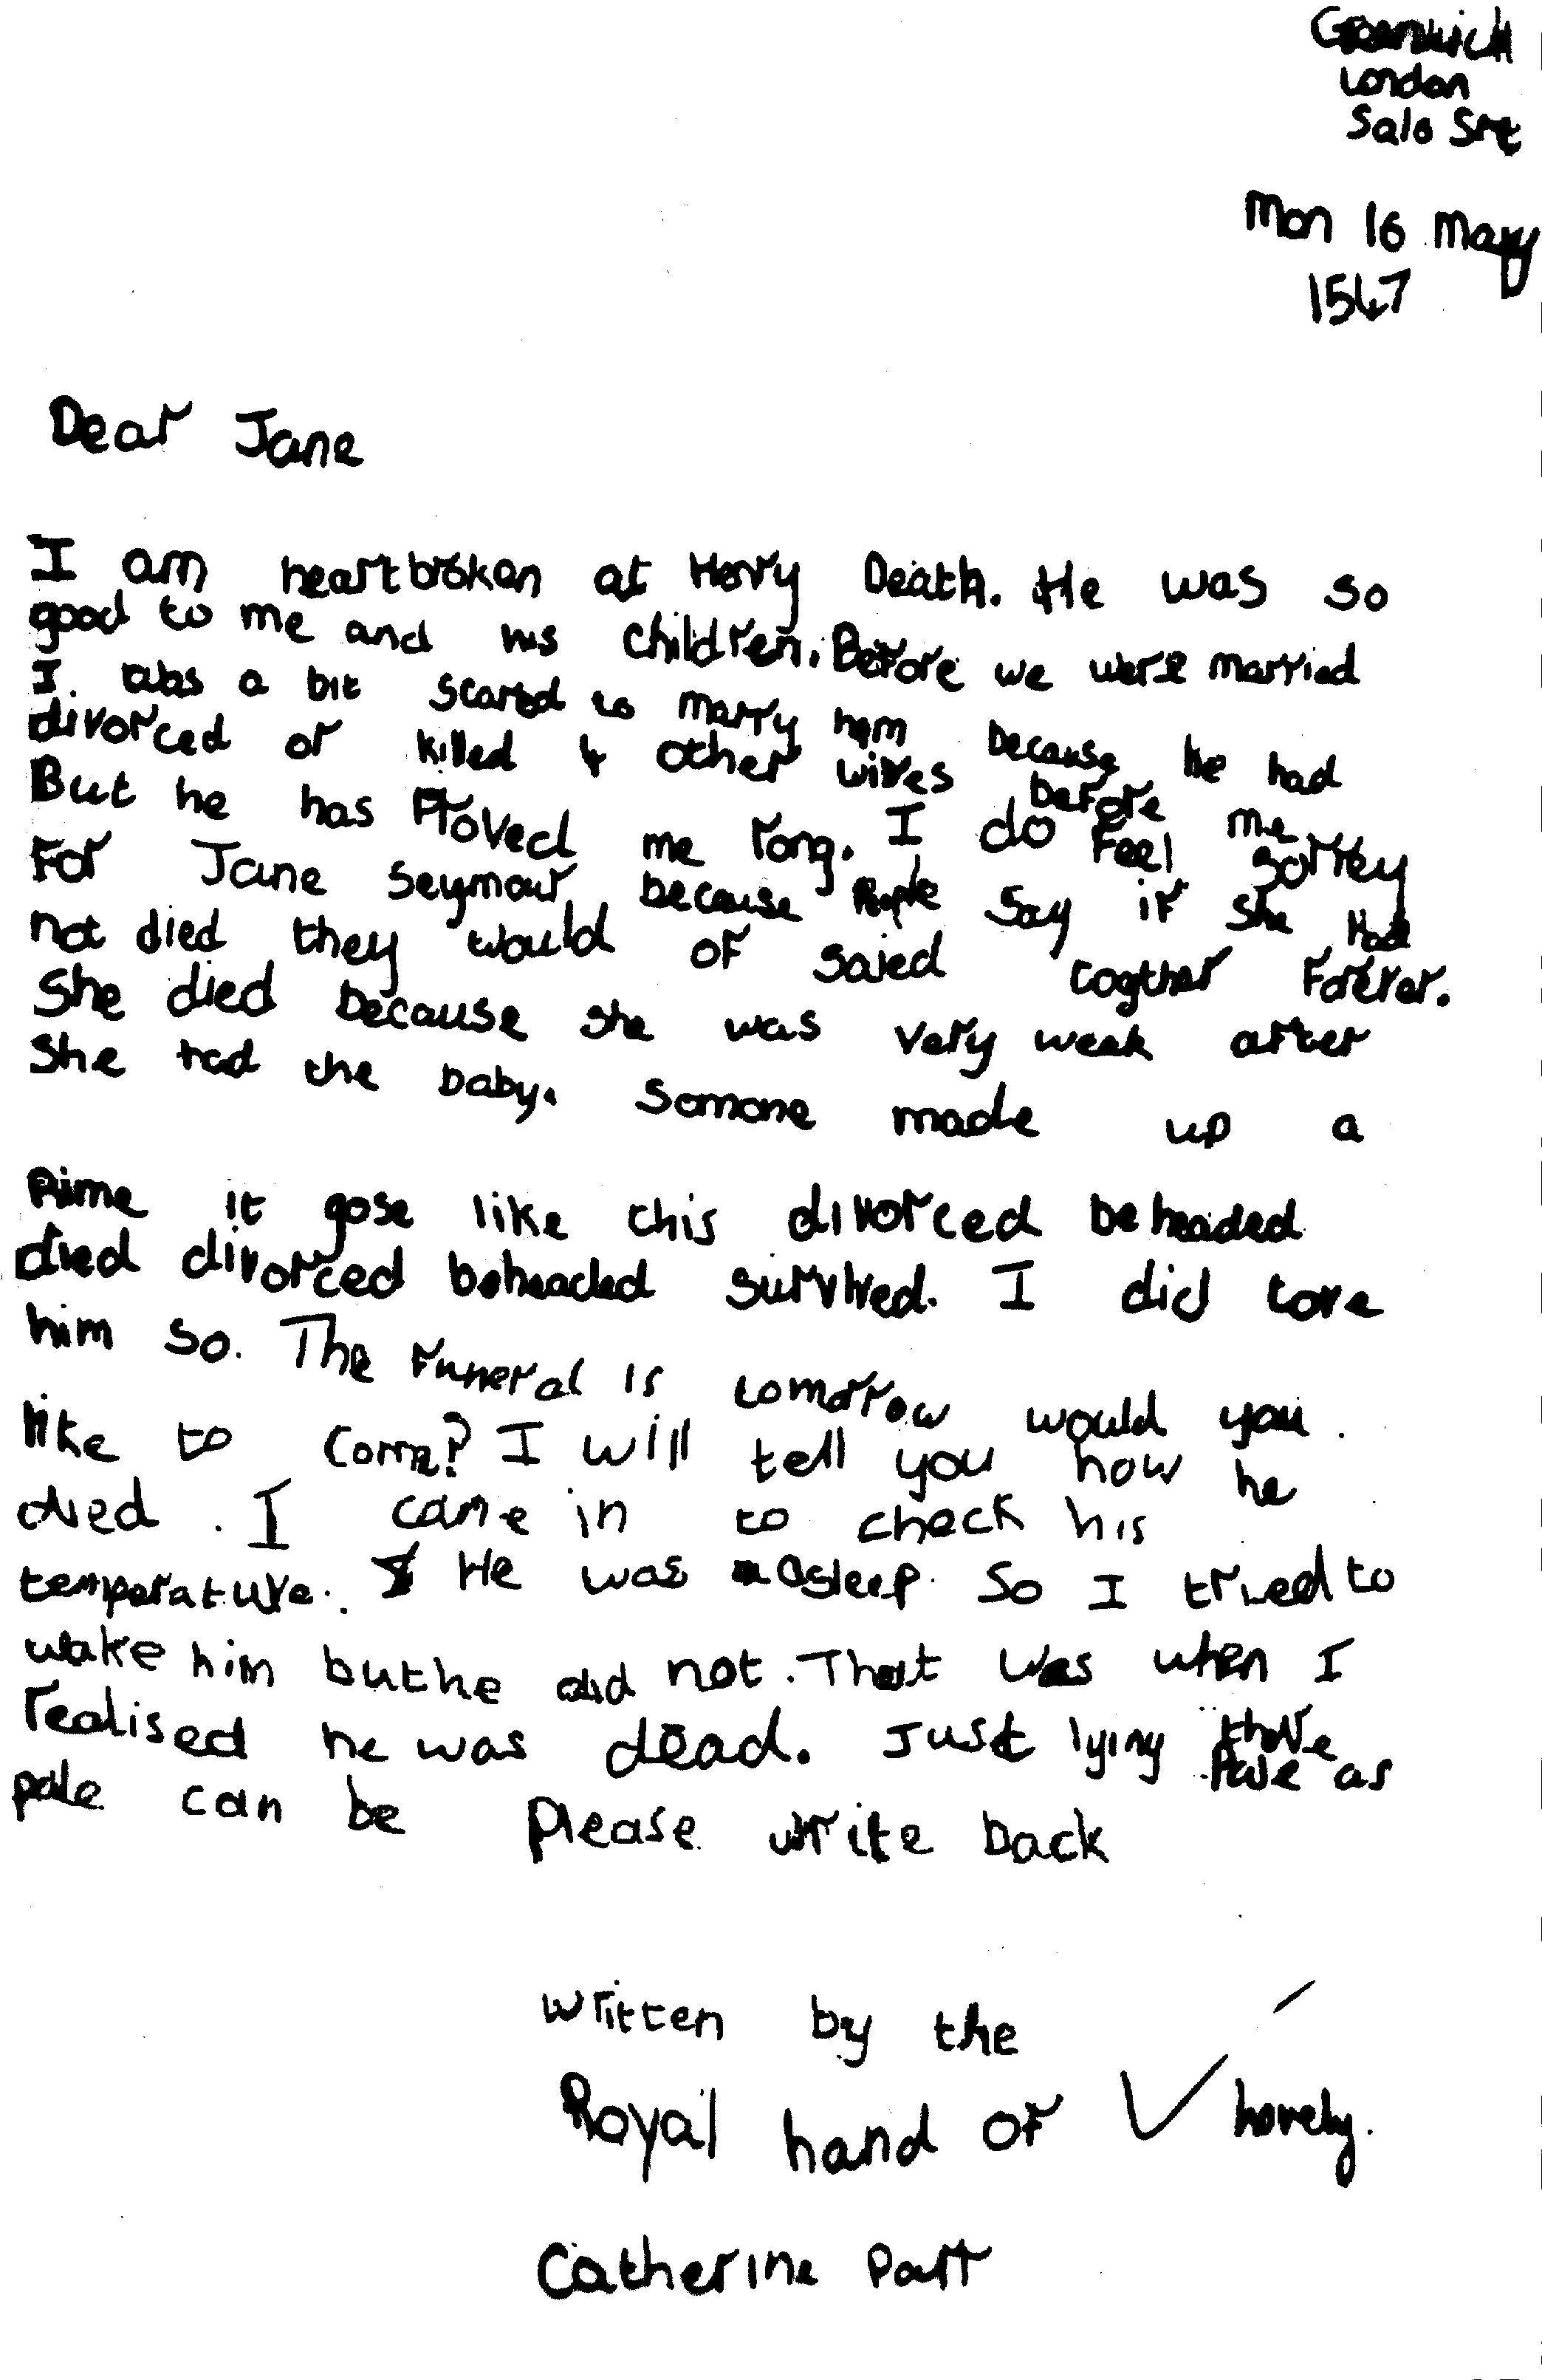 Greenwich
London
Sal6 Srt
Mon 16 Mary
1547
Dear Jane
I am heartbroken at Henry Death. He was so
good to me and his children. Before we were married
I was a bit scared to marry him because he had
divorced or killed 4 other wives before me
But he has Proved me rong. I do feel sorrey
For Jane Seymour because People say if she had
not died they would of saied togther Forever.
She died because she was very weak after
She had the baby. Somone made up a
Rime it gose like this divorced beheaded
died divorced beheaded survived. I did love
him so. The Funeral is tomorrow would you
like to come? I will tell you how he
died. I came in to check his
temperature. He was asleep. So I tried to
wake him but he did not. That was when I
realised he was dead. Just lying there
Pale as
pale can be Please write back
written by the
Royal hand of lovely.
Catherine Parr